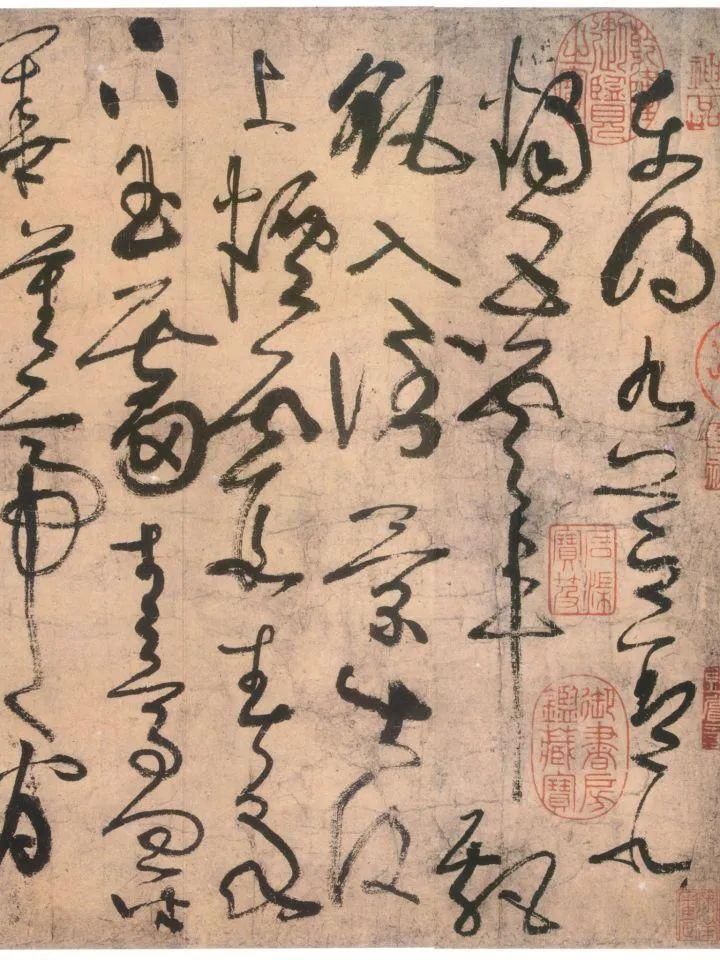 東明九芝蓋北
燭五雲車飄
颻入倒景出沒
上煙霞春泉
下玉霤青鳥向金
華漢帝看
神品
乾隆御覽之寶
石渠寶笈
御書房鑑藏寶